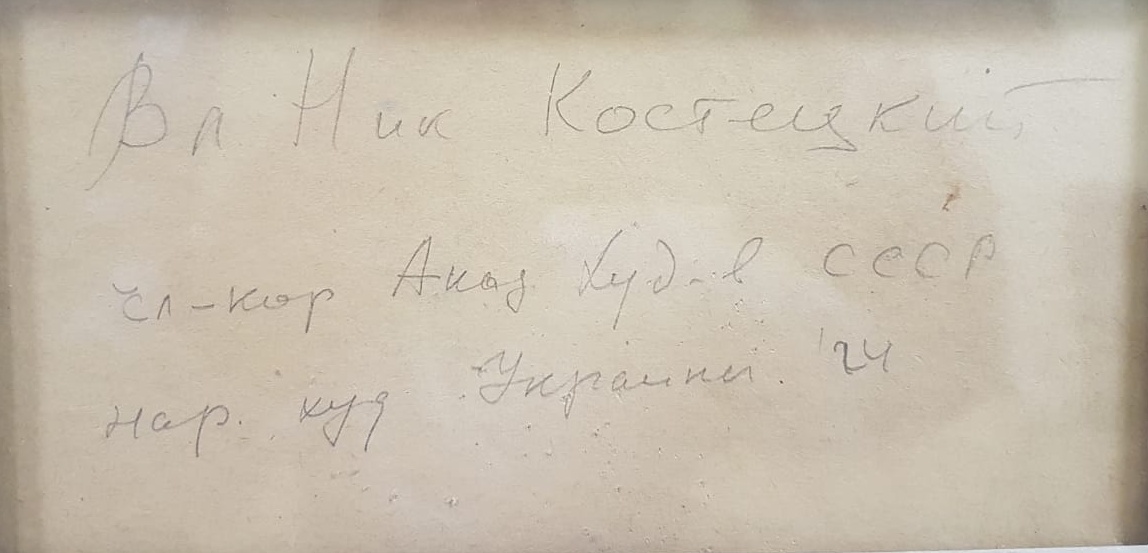 Вл Ник Костецкий
чл-кор Акад Худ-в СССР
нар. худ Украины. '24